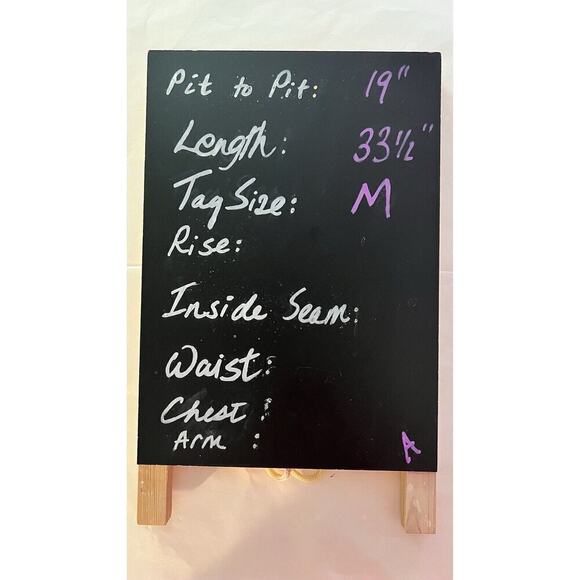 Pit to Pit: 19"
Length: 33 1/2"
Tag Size: M
Rise:
Inside Seam:
Waist:
Chest:
Arm : A